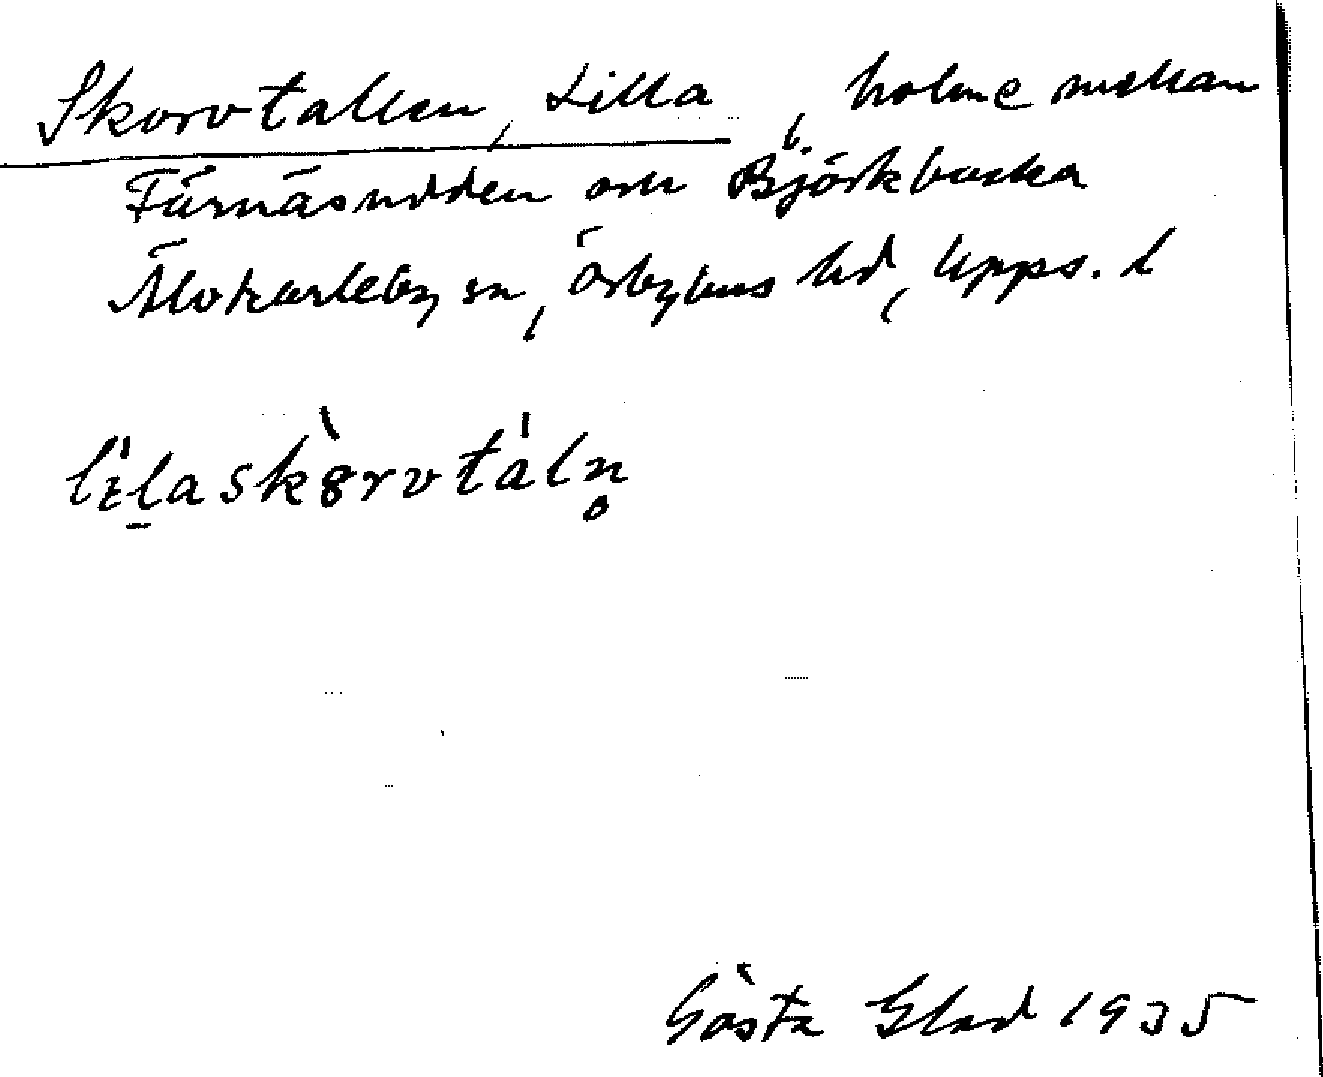 Skorvtallen, Lilla, holme mellan
Färnäsudden och Björkbacka
Älvkarleby sn, Örbyhus hd, Upps. l
lɪlaskȯrvtàln̥
Gösta Glad 1935